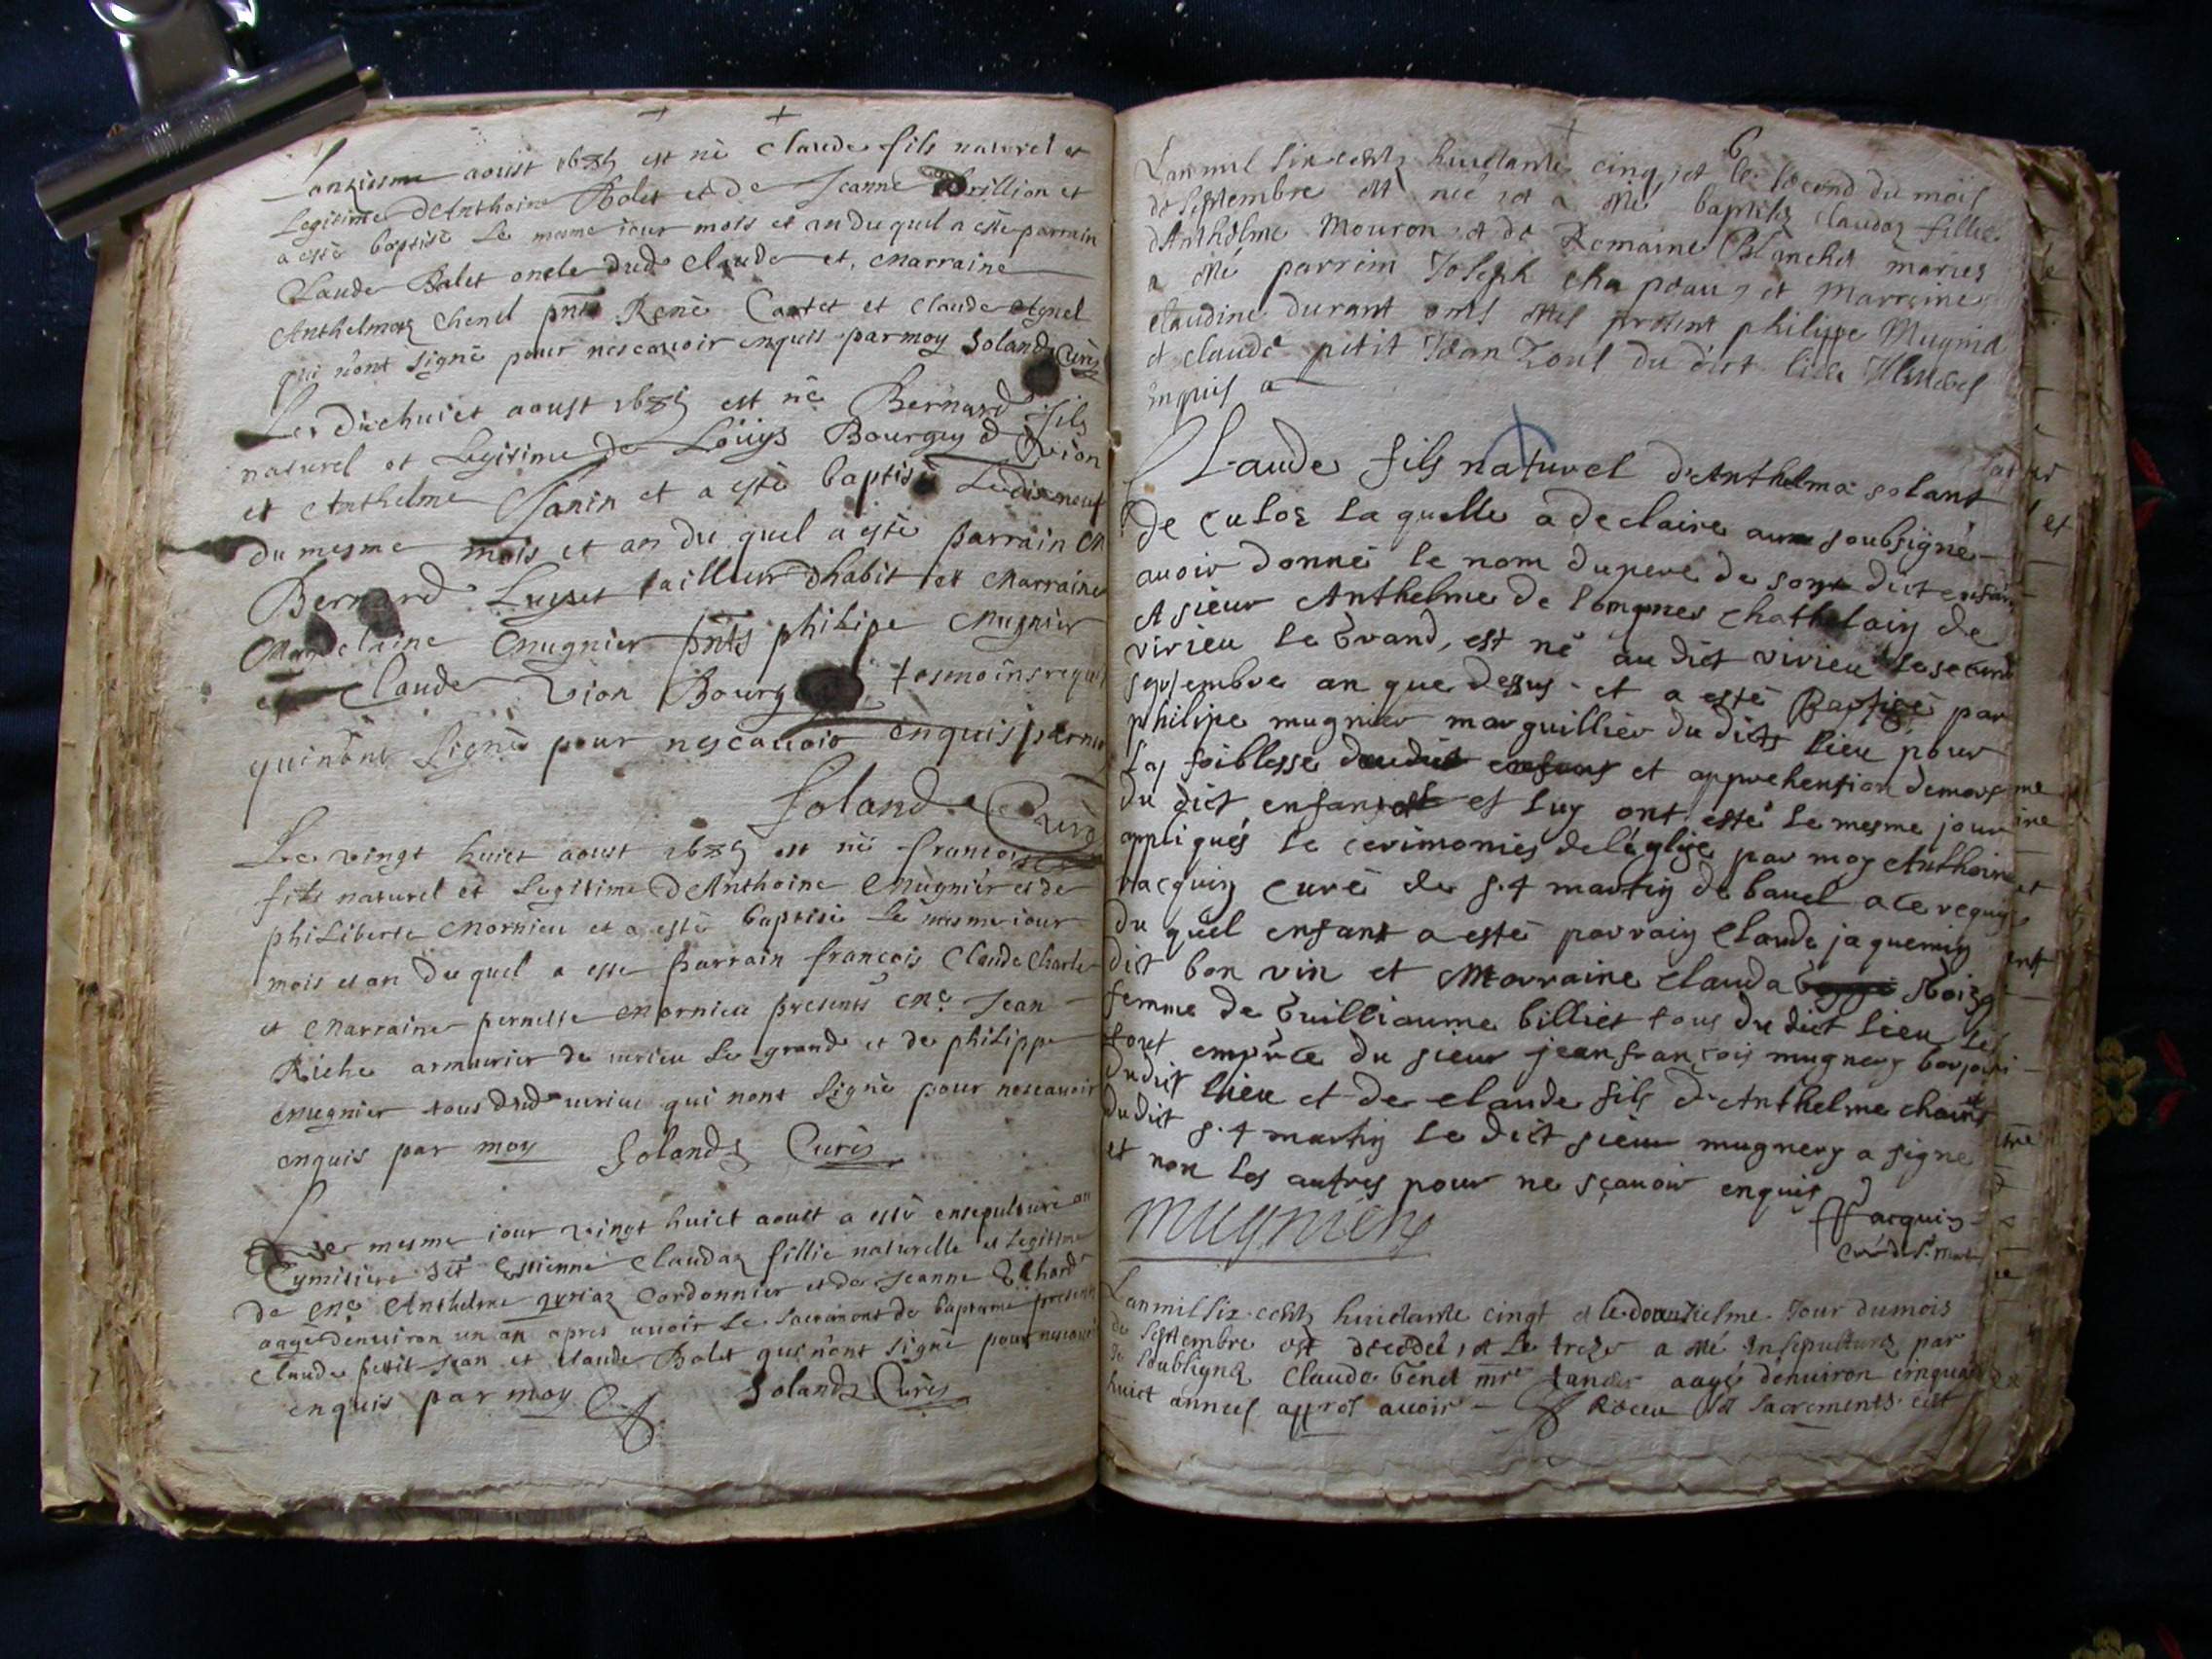 Lonziesme aoust 1685 est né Claude fils naturel et
Legitime d'Anthoine Bolet et de Jeanne Brillion et
a esté baptisé le mesme iour mois et an duquel a esté parrain
Claude Balet oncle dud. Claude et Marraine
Anthelmaz Chenel pnts René Cartet et Claude Agnel
qui n'ont signé pour nescauoir enquis par moy Soland Curé
Le Dixhuict aoust 1685 est né Bernard fils
naturel et Legitime de Loüys Bourgey d Vion
et Anthelme Janin et a esté baptisé Le dix neuf
du mesme mois et an du quel a esté parrain
Bernard Luyset tailleur dhabit et Marraine
Mandelaine Mugnier pnts philipe Mugnier
et Claude Vion Bourg tesmoins requis
qui nont signé pour nescauoir enquis par
Soland Curé
Le vingt huict aoust 1685 est né francois
fils naturel et Legitime D'Anthoine Mugnier et de
philiberte Mornieu et a esté baptisé le mesme iour
mois et an du quel a esté parrain françois Claude Charle
et Marraine pernette Mornieu presents Me Jean
Riche armurier de virieu le grand et de philippe
Mugnier tous dud virieu qui nont signé pour nescauoir
enquis par moy Soland Curé
Le mesme iour vingt huict aoust a esté ensepulturé au
Cymitiere St Estienne Claudaz fillie naturelle et legitime
de Me Anthelme Cordonnier et de Jeanne
aagé denuiron un an apres auoir le sacrement de baptsme presents
Claude petit Jean et Claude Bolet qui nont signé pour nescauoir
enquis par moy Soland Curé
6
Lan mil six cents huictante cinq, et le second du mois
de Septembre est née et a esté baptisée claudaz fillie
d'Anthelme Mouron et de Romaine Blanchet mariés
a esté parrin Joseph chapeau, et Marraine
claudine Durant onts estes present philippe Mugnié
et claude petit Jean tous du dict lieu Illiterés
enquis a
Claude fils naturel d'Anthelma solant
de Culoz laquelle a declaire au soubsigné
auoir donné le nom du pere de son dict enfan
A sieur Anthelme de Longnes Chathelain de
virieu le Grand, est né au dict virieu le second
septembre an que dessus et a esté Baptisé par
philipe mugnier marguillier du dict lieu pour
la foiblesse et apprehension de mors
du dict enfant et luy ont esté le mesme jour
appliqués le cerimonies de léglise par moy Anthoine
Jacquin curé de S.t martin de bauel a ce requis
du quel enfant a esté parrain Claude jaquemin
dict bon vin et Marraine Clauda
femme de Guilliaume billiet tous du dict lieu Le
tout du sieur jean françois mugnery
dudict lieu et de Claude fils d'Anthelme
dudict S.t martin Le dict sieur mugnery a signé
et non les autres pour ne sçauoir enquis
Mugniery
Jacquin
Curé de St. Mart
Lan mil six cents huictante cingt et le douuziesme Jour du mois
de Septembre est decedé, et le treze a esté Insepulturé par
le soubsigné Claude Genet mre aagé denuiron cinquante
huict années apprés auoir Receu les sacrements